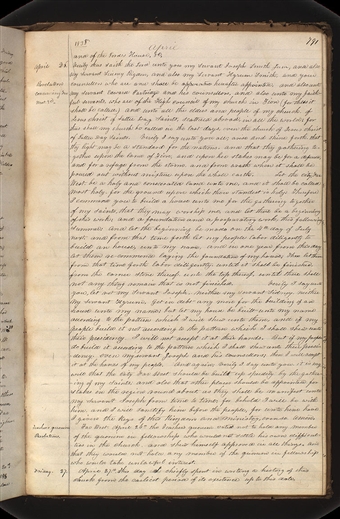 1838
April
791
and of the Lords House, &c
April 26 Verily thus saith the Lord unto you my Servant Joseph Smith Jun, and also
my Servant Sidney Rigdon, and also my Servant Hyrum Smith, and your
counsellors who are and shall be appointed hereafter, and also unto
my Servant Edward Partridge and his counsellors, and also unto my faith-
ful servants, who are of the High Council of my church in Zion (for thus it
shall be called) and unto all the elders and people of my church of
Jesus christ of latter Day Saints, scattered abroad in all the world; for
thus shall my church be called in the last days, even the church of Jesus christ
of latter day Saints. Verily I say unto you all; arise and shine forth that
thy light may be a standard for the nations and that the gathering to-
gether upon the land of Zion, and upon her stakes may be for a defence,
and for a refuge from the storm, and from wrath when it shall be
poured out without mixture upon the whole earth. Let the city Far
West be a holy and consecrated land unto me, and it shall be called
most holy, for the ground upon which thou standest is holy. Therefore
I command you to build a house unto me for the gathering together
of my saints that they may worship me, and let there be a beginning
of this work; and a foundation and a preparatory work, this following
summer; and let the beginning be made on the 4th day of July
next and from that time forth let my people labor diligently to
build an house, unto my name, and in one year from this day
let them re-commence laying the foundation of my house; thus let them
from that time forth labor diligently until it shall be finished,
from the corner stone thereof unto the top thereof, until there shall
not any thing remain that is not finished. Verily I say unto
you, let not my servant Joseph, neither my servant Sidney, neither
my servant Hyrum, get in debt any more for the building of an
house unto my name; but let an house be built unto my name
according to the pattern which I will shew unto them. And if my
people build it not according to the pattern which I shall shew unto
their presidency, I will not accept it at their hands. But if my people
do build it according to the pattern which I shall shew unto their presi-
dency, even my servant Joseph and his counsellors, then I will accept
it at the hands of my people. And again; verily I say unto you it is my
will that the city Far West should be built up speedily by the gather-
ing of my saints, and also that other places should be appointed for
stakes in the regions round about as they shall be manifest unto
my servant Joseph from time to time; for behold I will be with
him, and I will sanctify him before the people, for unto him have
I given the keys of this Kingdom and ministry; even so Amen.
Friday 27. April 27th This day I chiefly spent in writing a history of this
church from the earliest period of its existence up to this date